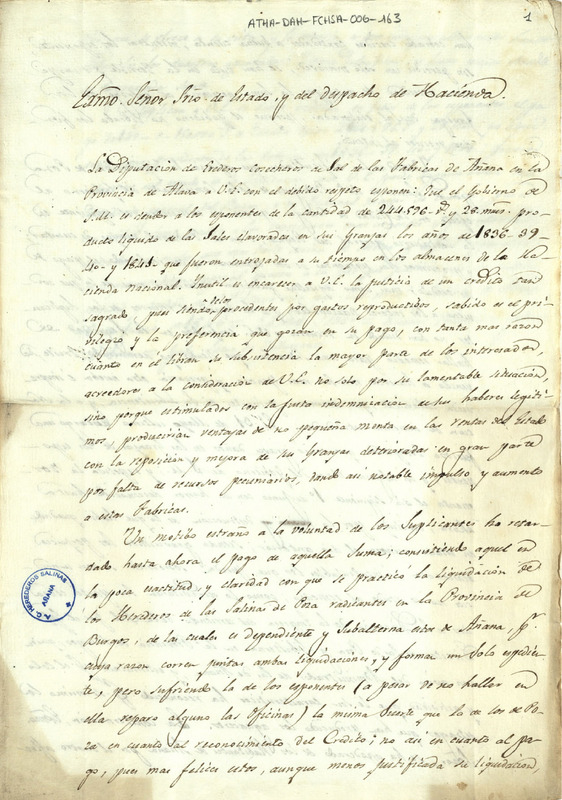 ATHA-DAH-FCHSA-006-163
1
Exmo. Señor Srio de Estado, y del despacho de Hacienda.
La Diputación de Erederos Cosecheros de Sal de las Fabricas de Añana en la
Provincia de Alava a V.E. con el debido respeto esponen: Que el Gobierno de
S.M. es deudor a los esponentes de la cantidad de 244.596 y 28 mrs. pro-
ducto liquido de las Sales elavoradas en sus Granjas los años de 1836-39-
40- y 1841- que fueron entrojadas a su tiempo en los almacenes de la Ha-
cienda Nacional. Inutil es encarecer a V.E. la justicia de un credito tan
sagrado, pues siendo procedentes por gastos reproductibos, sabido es el pri-
vilegio y la preferencia que gozan en su pago, con tanta mas razon
cuanto en el libran su subsistencia la mayor parte de los interesados,
acreedores a la consideracion de V.E. no solo por su lamentable situación,
sino porque estimulados con la justa indemnizacion de sus haberes legiti-
mos, producirán ventajas de no pequeña monta en las rentas del Estado
con la reposición y mejora de sus Granjas deterioradas en gran parte
por falta de recursos pecuniarios, dando asi notable impulso y aumento
a estas Fabricas.
Un motibo estraño a la voluntad de los Suplicantes ha retar-
dado hasta ahora el pago de aquella Suma; consistiendo aquel en
la poca exactitud, y claridad con que se practicó la liquidación de
los Herederos de las Salinas de Poza radicantes en la Provincia de
Burgos, de las cuales es dependiente y Subalterna esta de Añana, pr.
cuya razon corren juntas ambas liquidaciones, y forman un solo espedien-
te, pero sufriendo la de los esponentes (a pesar de no hallar en
ella reparo alguno las Oficinas) la misma Suerte que la de los de Po-
za en cuanto al reconocimiento del Credito; no asi en cuanto al pa-
go, pues mas felices estos, aunque menos justificada su liquidacion,
A. C. HEREDEROS SALINAS
AÑANA